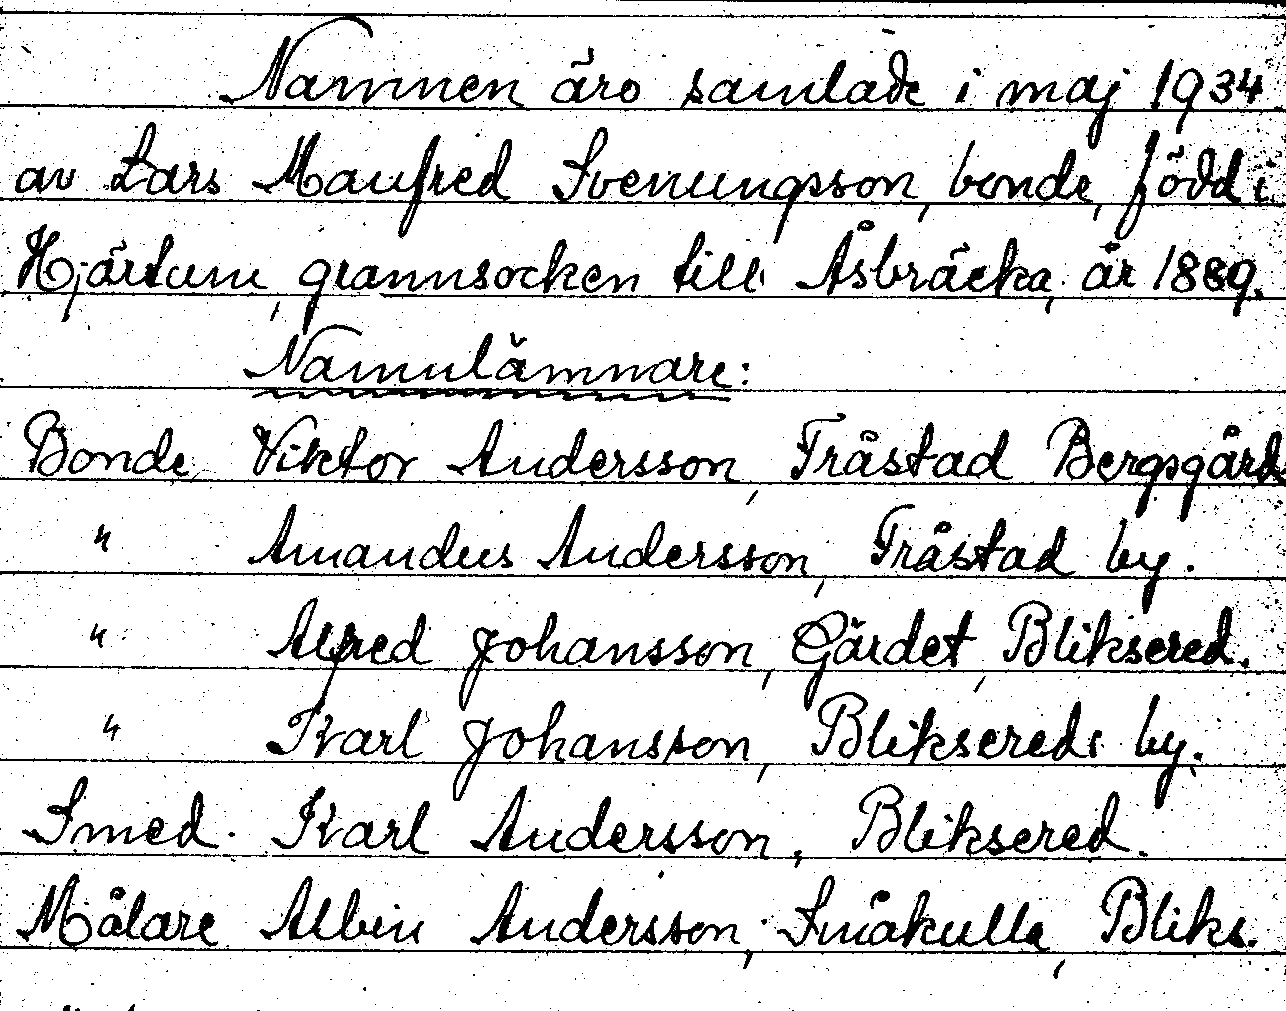 Namnen äro samlade i maj 1934
av Lars Manfred Svenungsson, bonde, född i
Hjärtum, grannsocken till Åsbräcka, år 1889.
Namnlämnare:
Bonde Viktor Andersson, Fråstad Bergsgård
" Amandus Andersson, Fråstad by.
" Alfred Johansson, Gärdet, Bliksered.
" Karl Johansson, Bliksereds by.
Smed. Karl Andersson, Bliksered.
Målare Albin Andersson, Småkulla, Bliks.